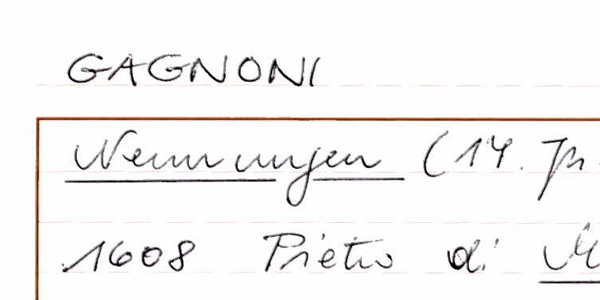 GAGNONI
Nennungen (14. Jh.
1608 Pietro di